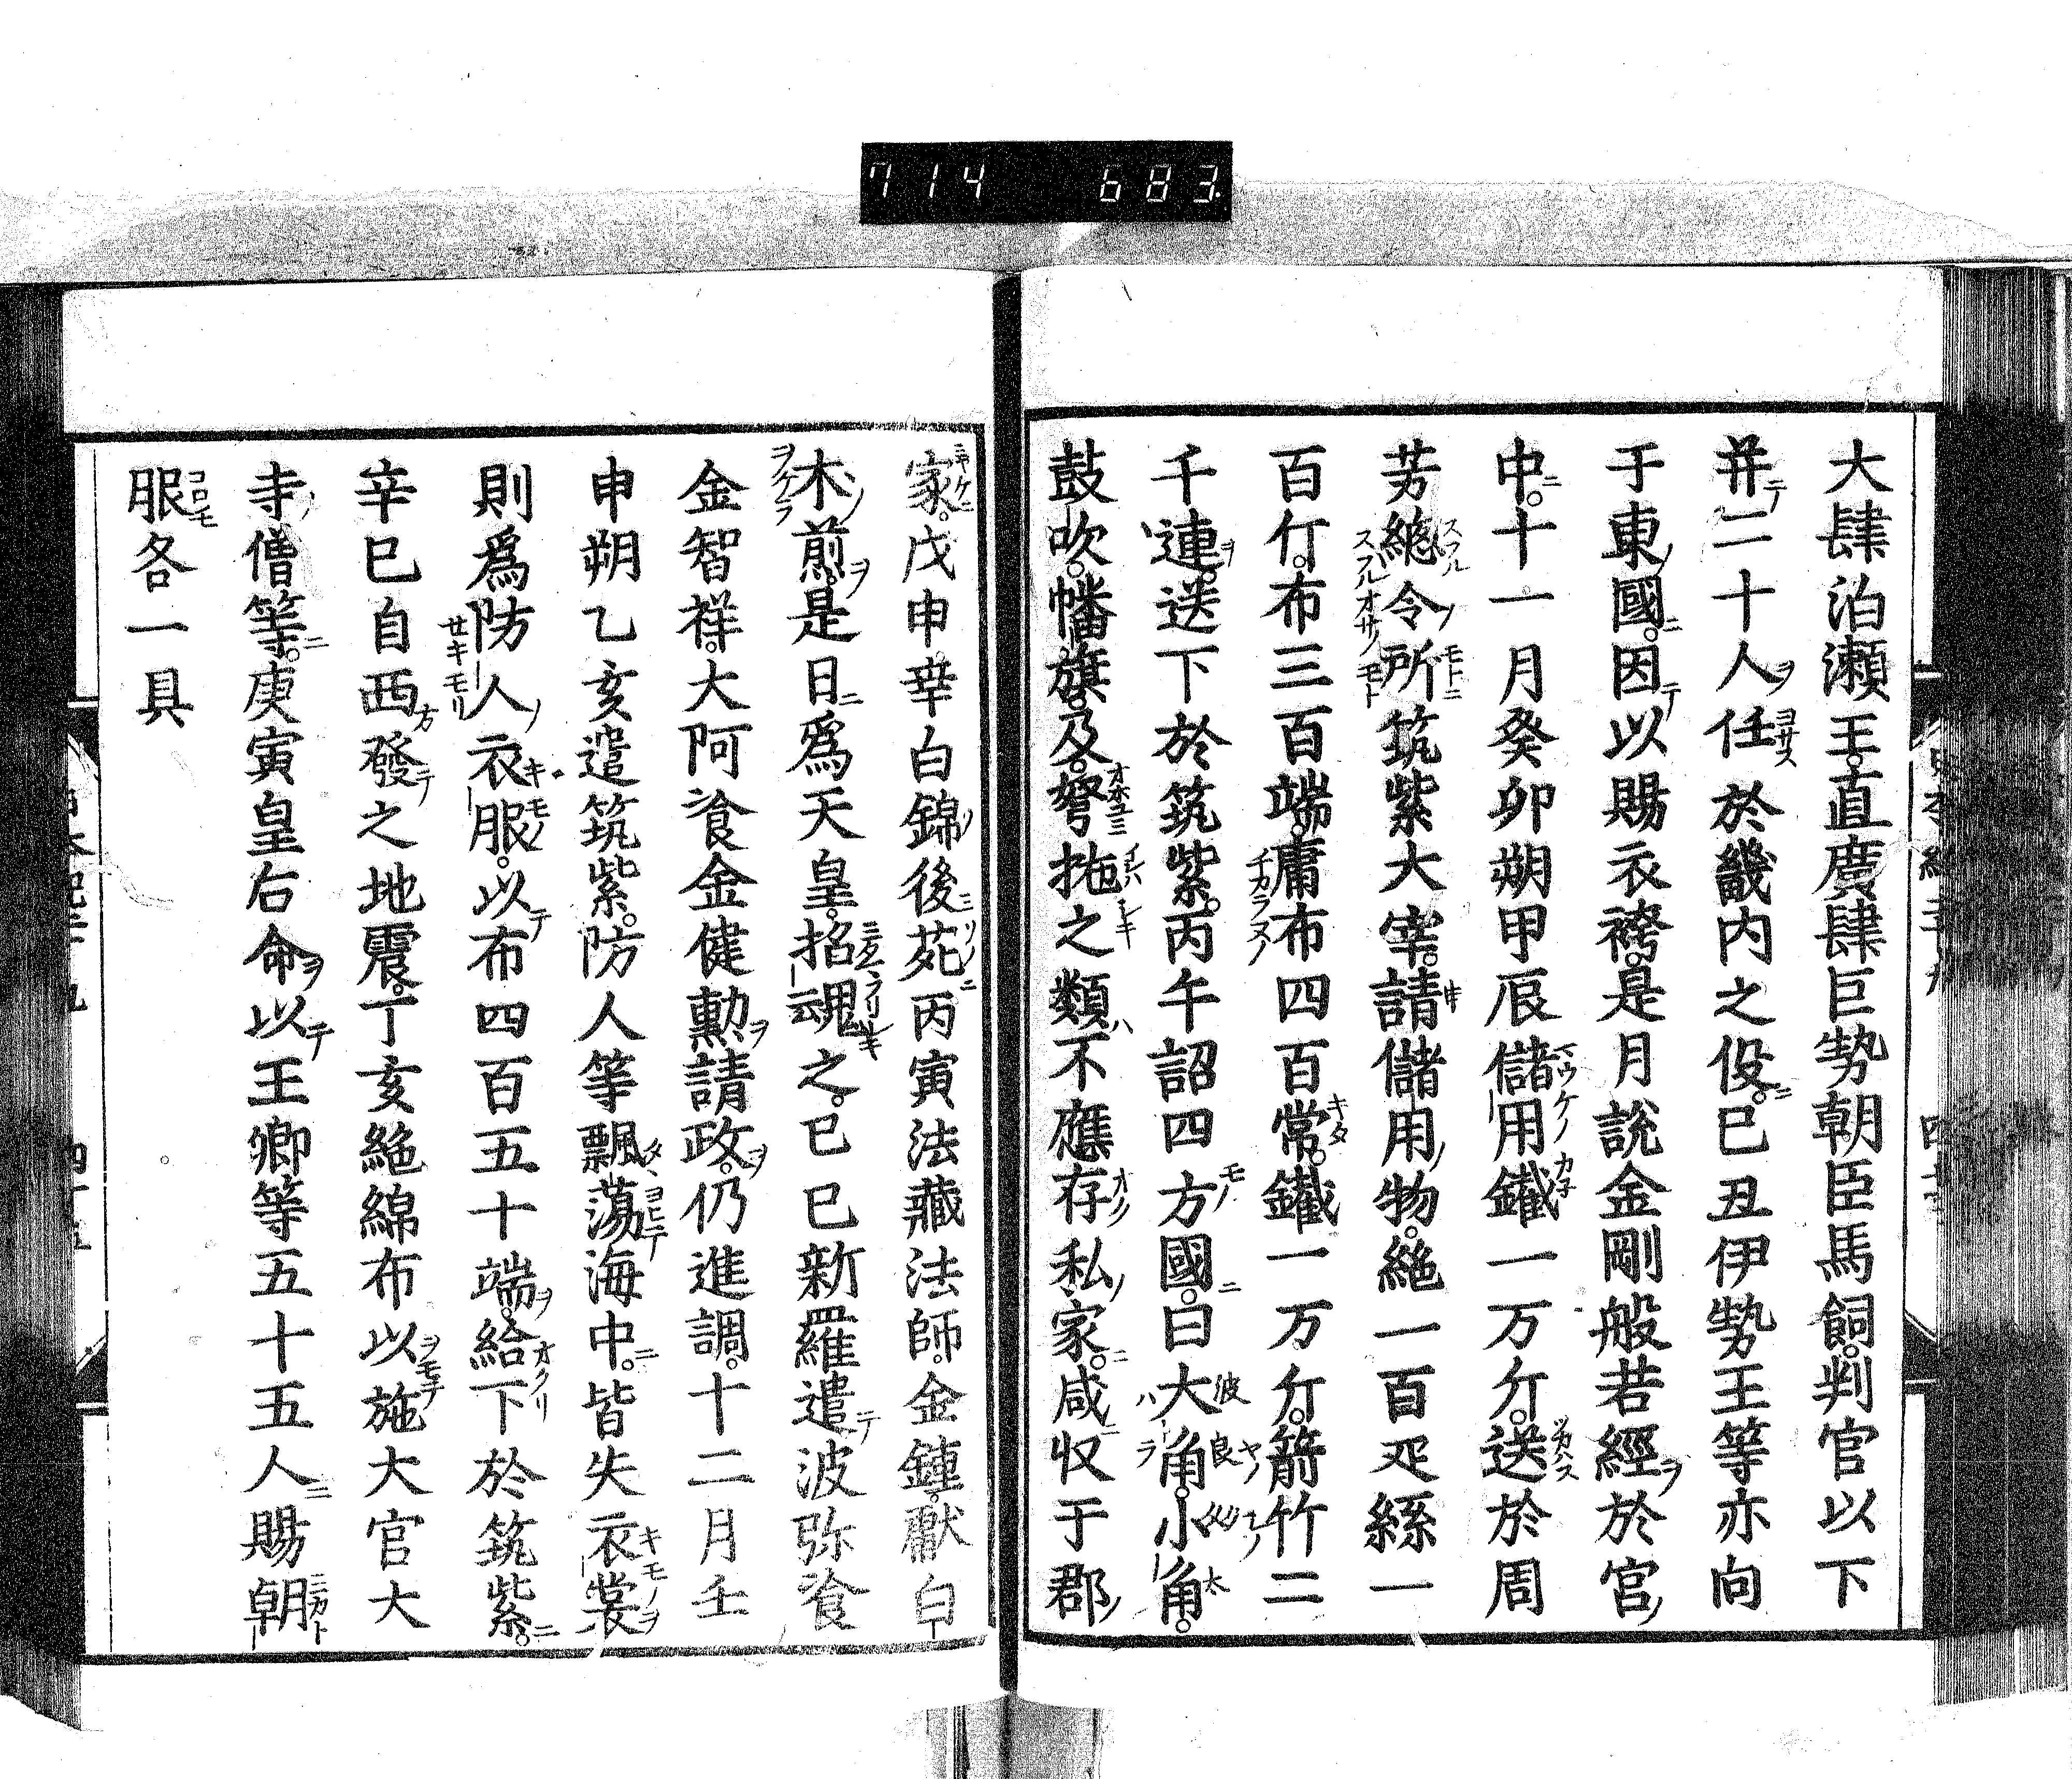 714 683.
大肆泊瀬王。直廣肆巨勢朝臣馬飼。判官以下
并二十人任於畿内之役。巳丑伊勢王等亦向
于東國。因以賜衣袴。是月説金剛般若經於官
中。十一月癸卯朔甲辰儲用鐵一万斤。送於周
芳総令所筑紫大宰。請儲用物。絁一百疋絲一
百斤。布三百端。庸布四百常。鐵一万斤。箭竹二
千連。送下於筑紫。丙午詔四方國。曰大角。小角。
鼓吹。幡旗。及。弩抛之類不應存私家。咸收于郡
家。戊申。幸白錦後苑丙寅法藏法師。金鍾。獻白
木煎。是日爲天皇。招魂之。已巳新羅遣波弥飡
金智祥。大阿飡金健勲請政。仍進調。十二月壬
申朔乙亥遣筑紫。防人等飄蕩海中。皆失衣裳
則爲防人衣服。以布四百五十端。給下於筑紫。
辛巳自西發之地震。丁亥絁綿布以施大官大
寺僧等。庚寅皇后命以王卿等五十五人賜朝
服各一具